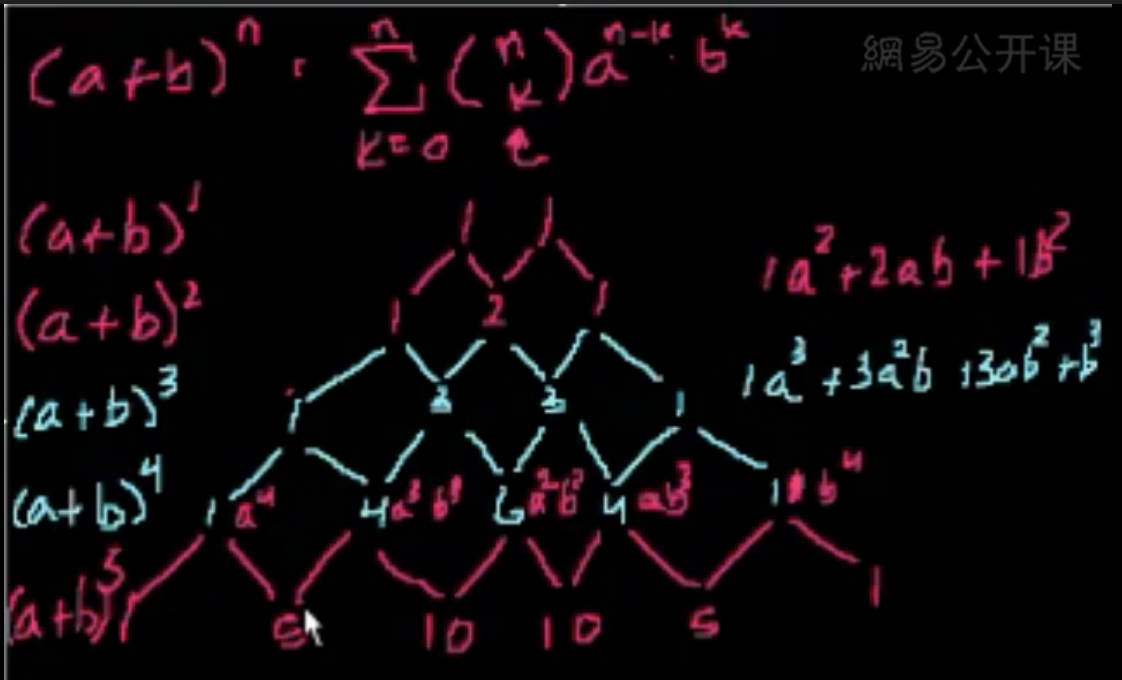 網易公开课
(a+b)^n = ∑_{k=0}^{n} (n k) a^{n-k} · b^k
(a+b)^1 1 1
(a+b)^2 1 2 1 1a^2+2ab+1b^2
(a+b)^3 1 3 3 1 1a^3+3a^2b+3ab^2+b^3
(a+b)^4 1 a^4 4 a^3 b^1 6 a^2b^2 4 ab^3 1 b^4
(a+b)^5 1 5 10 10 5 1